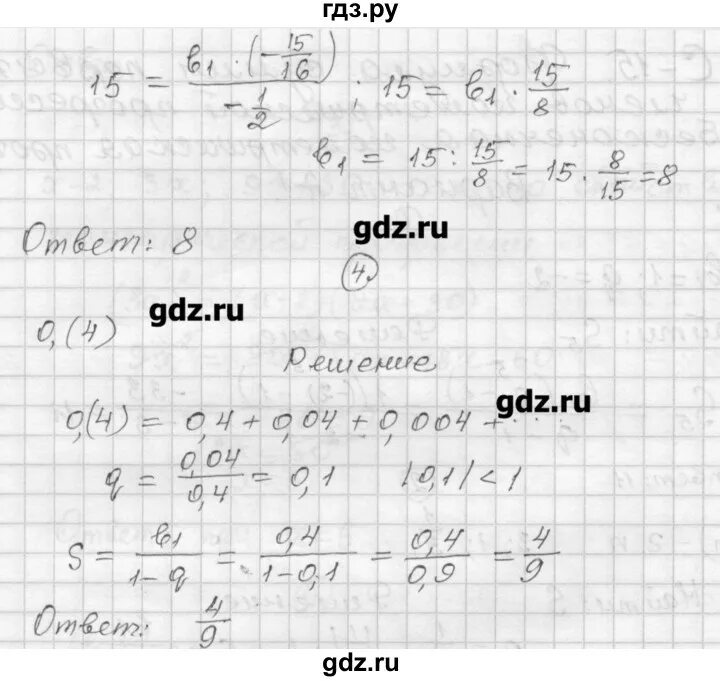 гдз.ру
15 = b₁·(-15/16) / -1/2 ; 15 = b₁ · 15/8
b₁ = 15 : 15/8 = 15 · 8/15 = 8
Ответ: 8
gdz.ru
4.
gdz.ru
0,(4)
Решение
gdz.ru
0,(4) = 0,4 + 0,04 + 0,004 + ...
q = 0,04/0,4 = 0,1 |0,1| < 1
S = b₁/1-q = 0,4/1-0,1 = 0,4/0,9 = 4/9
Ответ: 4/9
gdz.ru